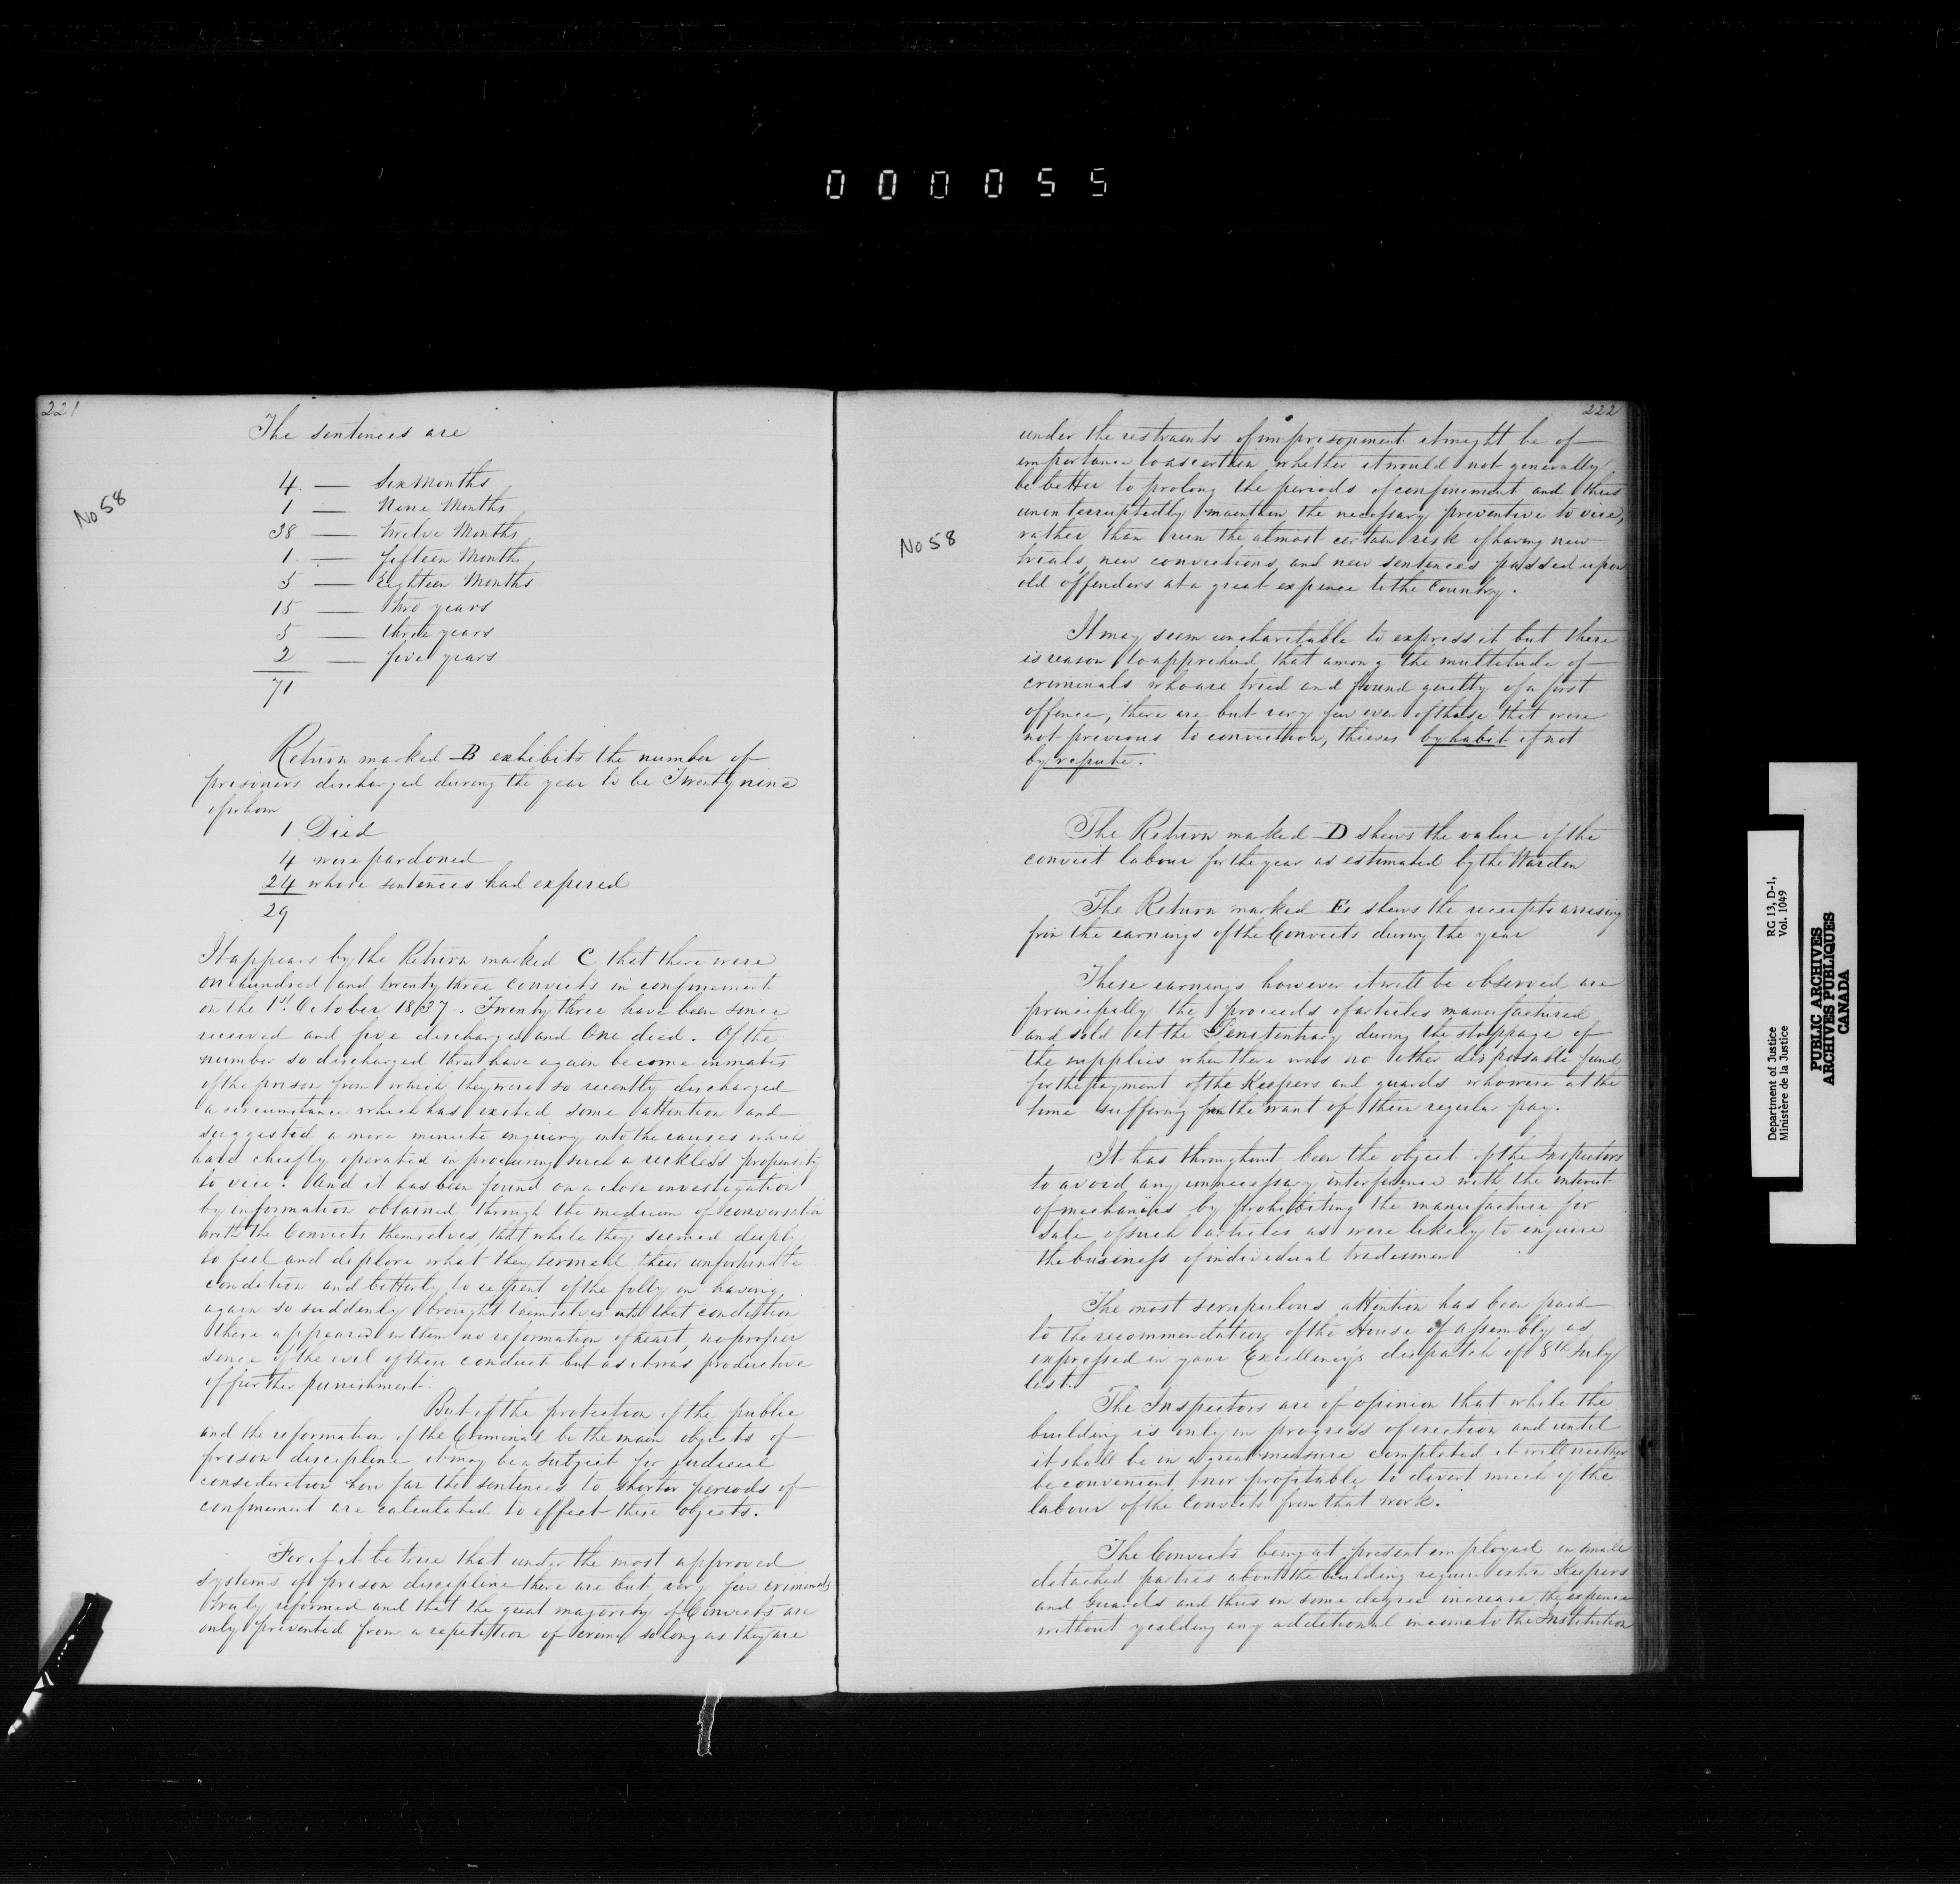 000055
221
No 58
The sentences are
4 — Six Months
1 — Nine Months
38 — Twelve Months
1 — fifteen Months
5 — Eighteen Months
15 — Two years
5 — three years
2 — five years
71
Return marked B exhibits the number of
prisoners discharged during the year to be Twenty nine
of whom
1 Died
4 were pardoned
24 whose sentences had expired
29
It appears by the Return marked C that there were
one hundred and twenty three convicts in confinement
on the 1st October 1837. Twenty three have been since
received and five discharged and One died. Of the
number so discharged three have again become inmates
of the prison from which they were so recently discharged
a circumstance which has excited some attention and
suggested a more minute enquiry into the causes which
had chiefly operated in producing such a reckless propensity
to vice. And it has been found on a close investigation
by information obtained through the medium of conversation
with the Convicts themselves, that while they seemed deeply
to feel and deplore what they termed their unfortunate
condition and bitterly to repent of the folly in having
again so suddenly brought themselves into that condition
there appeared in them no reformation of heart, no proper
sense of the evil of their conduct but as it was productive
of further punishment.
But if the protection of the public
and the reformation of the Criminal be the main objects of
prison discipline it may be a subject for judicial
consideration how far the sentences to shorter periods of
confinement are calculated to effect these objects.
For if it be true that under the most approved
systems of prison discipline there are but very few criminals
truly reformed and that the great majority of Convicts are
only prevented from a repetition of crime so long as they are
222
No 58
under the restraints of imprisonment it might be of
importance to ascertain whether it would not generally
be better to prolong the periods of confinement and thus
uninterruptedly maintain the necessary preventive to vice,
rather than run the almost certain risk of having new
trials, new convictions, and new sentences passed upon
old offenders at a great expence to the Country.
It may seem uncharitable to express it but there
is reason to apprehend that among the multitude of
criminals who are tried and found guilty of a first
offence, there are but very few even of those that were
not previous to conviction, thieves by habit if not
by repute.
The Return marked D shews the value of the
convict labour for the year as estimated by the Warden
The Return marked E shews the receipts arrising
from the earnings of the Convicts during the year
These earnings however it will be observed are
principally the proceeds of articles manufactured
and sold at the Penitentiary during the stoppage of
the supplies when there was no other disposable fund
for the payment of the Keepers and guards who were at the
time suffering from the want of their regular pay.
It has throughout been the object of the Inspectors
to avoid any unnecessary interference with the interest
of mechanics by prohibiting the manufacture for
Sale of such articles as were likely to enjure
the business of individual tradesmen
The most scrupulous attention has been paid
to the recommendation of the House of Assembly as
expressed in your Excellency's dispatch of 8th July
last.
The Inspectors are of opinion that while the
building is only in progress of erection and until
it shall be in a great measure completed it will neither
be convenient nor profitable to divert much of the
labour of the Convicts from that work.
The Convicts being at present employed in small
detached parties about the building require extra Keepers
and Guards and thus in some degree increase the expence
without yealding any additional income to the Institution
Department of Justice
Ministère de la Justice
RG 13, D-1,
Vol. 1049
PUBLIC ARCHIVES
ARCHIVES PUBLIQUES
CANADA